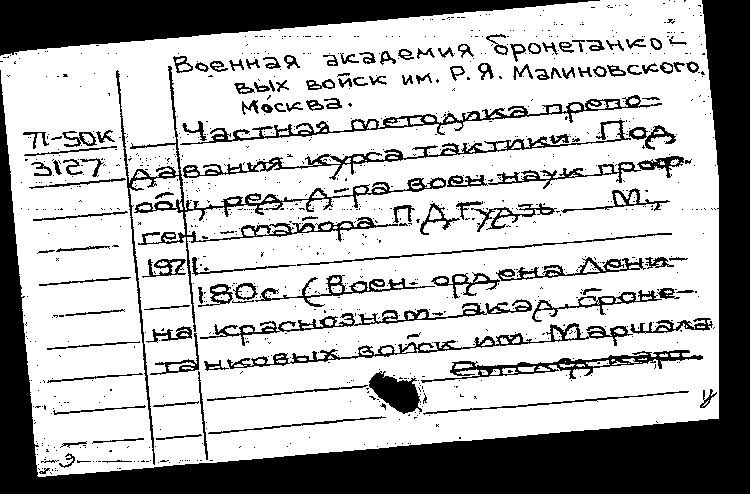 Военная академия бронетанко-
вых войск им. Р.Я. Малиновского.
Москва.
71-50К
3127
Частная методика препо-
давания курса тактики. Под
общ. ред. д-ра воен. наук проф.
ген.-майора П.Д.Гудзь. М.,
1971.
180с. (Воен. ордена Лени-
на краснознам. акад. броне-
танковых войск им. Маршала
См. след. карт.
у
э